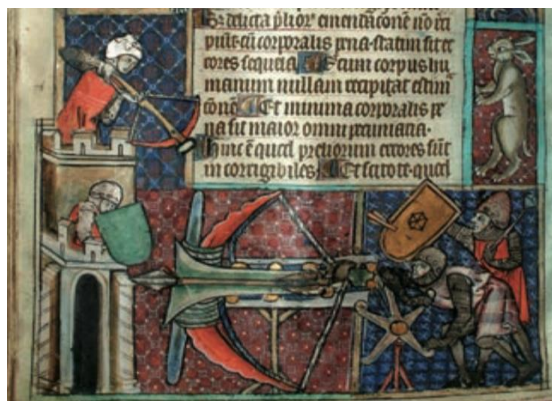 delicta plior emendacone no
piut cu corporalis pena statim sit et
cores sequela Et cum corpus hu
manum nullam recipitat estim
Et minima corporalis pe
na sit maior omni pecuniana.
hinc e quod preliorum errores sut
in corrigibiles Et scito te quod